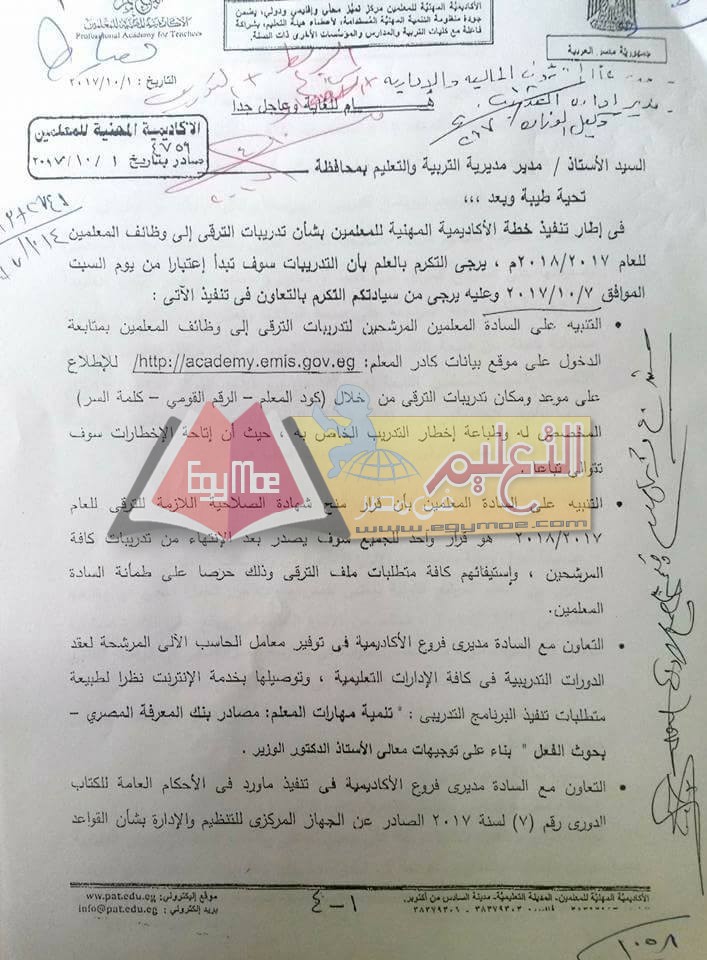 الأكاديمية المهنية للمعلمين
Professional Academy for Teachers
الأكاديمية المهنية للمعلمين مركز تميز محلي وإقليمي ودولي، يضمن
جودة منظومة التنمية المهنية المستدامة، لأعضاء هيئة التعليم، بشراكة
فاعلة مع كليات التربية والمدارس والمؤسسات الأخرى ذات الصلة.
جمهورية مصر العربية
التاريخ : ٢٠١٧/١٠/١
هــــام للغاية وعاجل جدا
الاكاديمية المهنية للمعلمين
٤٧٥٩
صادر بتاريخ ١ /١٠/ ٢٠١٧
السيد الأستاذ / مدير مديرية التربية والتعليم بمحافظة
تحية طيبة وبعد ،،،
فى إطار تنفيذ خطة الأكاديمية المهنية للمعلمين بشأن تدريبات الترقى إلى وظائف المعلمين
للعام ٢٠١٨/٢٠١٧م ، يرجى التكرم بالعلم بأن التدريبات سوف تبدأ إعتبارا من يوم السبت
الموافق ٢٠١٧/١٠/٧ وعليه يرجى من سيادتكم التكرم بالتعاون فى تنفيذ الآتى :
• التنبيه على السادة المعلمين المرشحين لتدريبات الترقى إلى وظائف المعلمين بمتابعة
الدخول على موقع بيانات كادر المعلم: http://academy.emis.gov.eg/ للإطلاع
على موعد ومكان تدريبات الترقى من خلال (كود المعلم – الرقم القومي – كلمة السر)
المخصص له وطباعة إخطار التدريب الخاص به ، حيث أن إتاحة الإخطارات سوف
تتوالى تباعا .
التعليم
فى مصر
EgyMoe
www.egymoe.com
• التنبيه على السادة المعلمين بأن قرار منح شهادة الصلاحية اللازمة للترقى للعام
٢٠١٨/٢٠١٧ هو قرار واحد للجميع سوف يصدر بعد الإنتهاء من تدريبات كافة
المرشحين ، وإستيفائهم كافة متطلبات ملف الترقى وذلك حرصا على طمأنة السادة
المعلمين.
• التعاون مع السادة مديرى فروع الأكاديمية فى توفير معامل الحاسب الآلى المرشحة لعقد
الدورات التدريبية فى كافة الإدارات التعليمية ، وتوصيلها بخدمة الإنترنت نظرا لطبيعة
متطلبات تنفيذ البرنامج التدريبى : " تنمية مهارات المعلم: مصادر بنك المعرفة المصري –
بحوث الفعل " بناء على توجيهات معالى الأستاذ الدكتور الوزير .
• التعاون مع السادة مديرى فروع الأكاديمية فى تنفيذ ماورد فى الأحكام العامة للكتاب
الدورى رقم (٧) لسنة ٢٠١٧ الصادر عن الجهاز المركزى للتنظيم والإدارة بشأن القواعد
الأكاديمية المهنية للمعلمين- المدينة التعليمية- مدينة السادس من أكتوبر.
٣٨٣٧٩٣٠١ - ٣٨٣٧٩٣٠٣
١-٤
موقع إليكترونى: ww.pat.edu.eg
بريد إليكترونى : info@pat.edu.eg
١٠٥٨